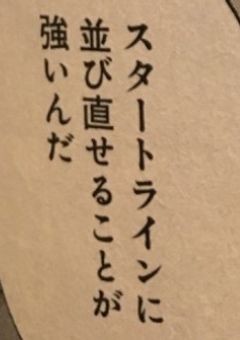 スタートラインに
並び直せることが
強いんだ